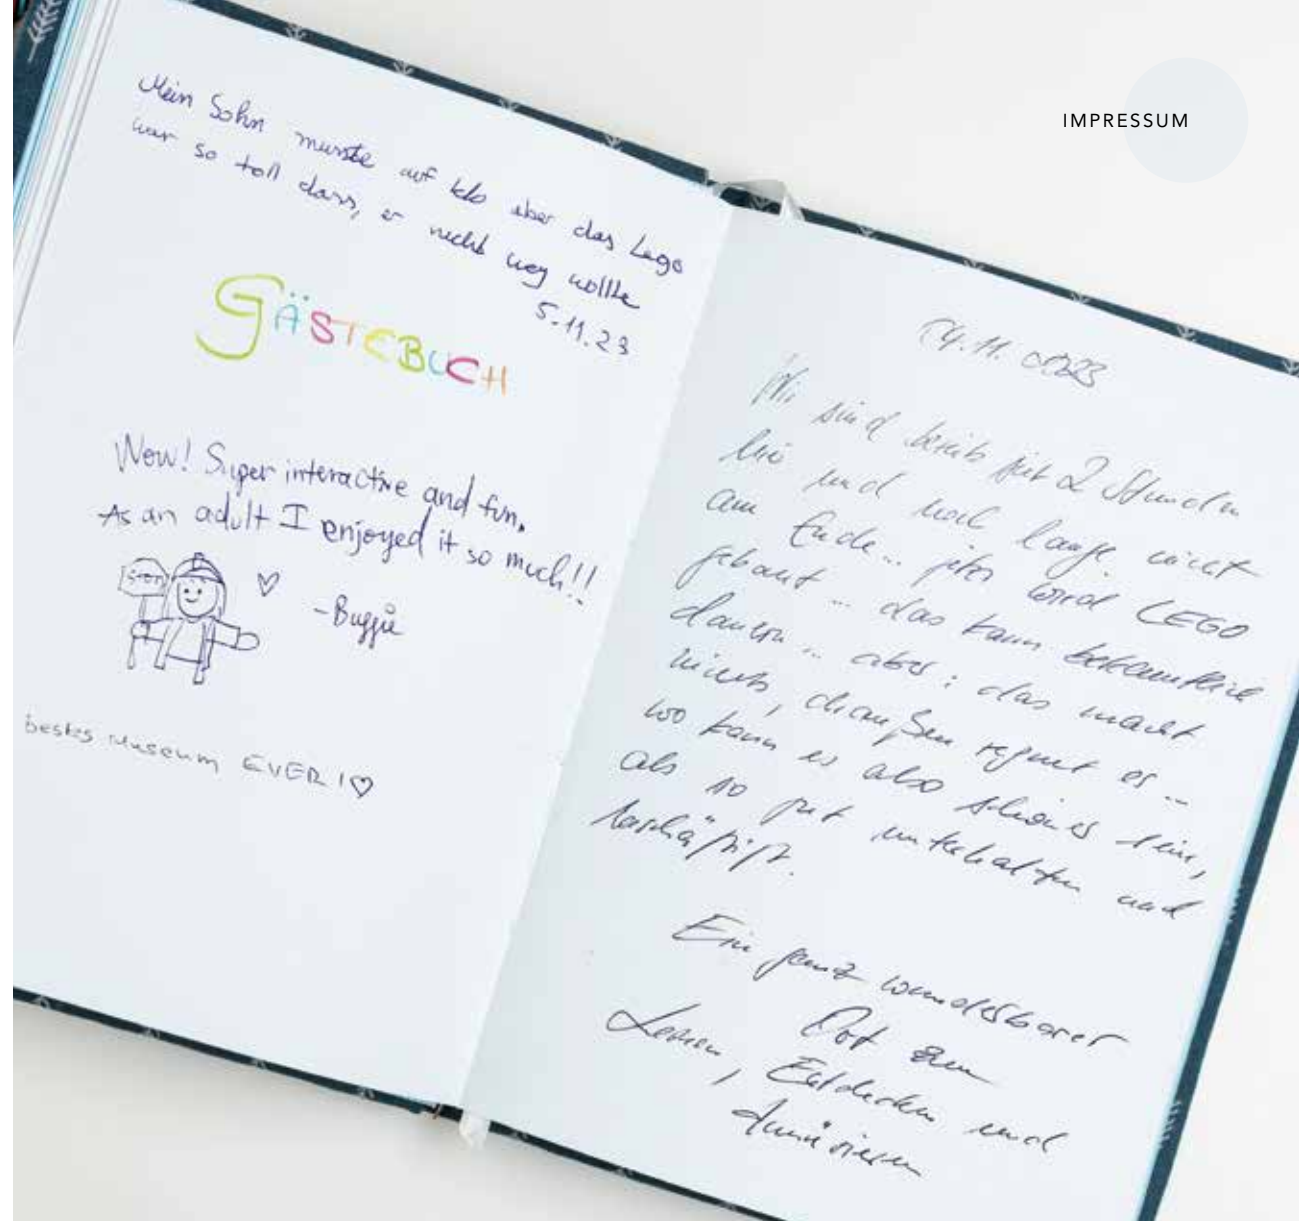 IMPRESSUM
Mein Sohn musste auf klo aber das Lego
war so toll dass, er nicht weg wollte
5.11.23
GÄSTEBUCH
Wow! Super interactive and fun.
As an adult I enjoyed it so much!!
STOP
-Buggie
bestes Museum EVER!♡
14.11.2023
Wir sind bereits seit 2 Stunden
hier und noch lange nicht
am Ende... jetzt wird LEGO
gebaut... das kann bekanntlich
dauern... aber: das macht
nichts, draußen regnet es...
wo kann es also schöner sein,
als so gut unterhalten und
beschäftigt.
Ein ganz wunderbarer
Ort zum
Lernen, Entdecken und
Amüsieren